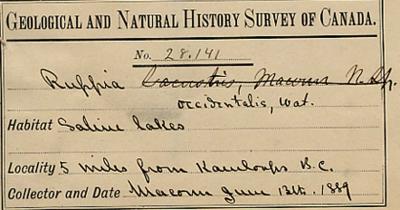 GEOLOGICAL AND NATURAL HISTORY SURVEY OF CANADA.
No. 28.141
Ruppia lacustris, Macoun N. Sp.
occidentalis, Wat.
Habitat Saline lakes
Locality 5 miles from Kamloops B.C.
Collector and Date Macoun June 13th. 1889